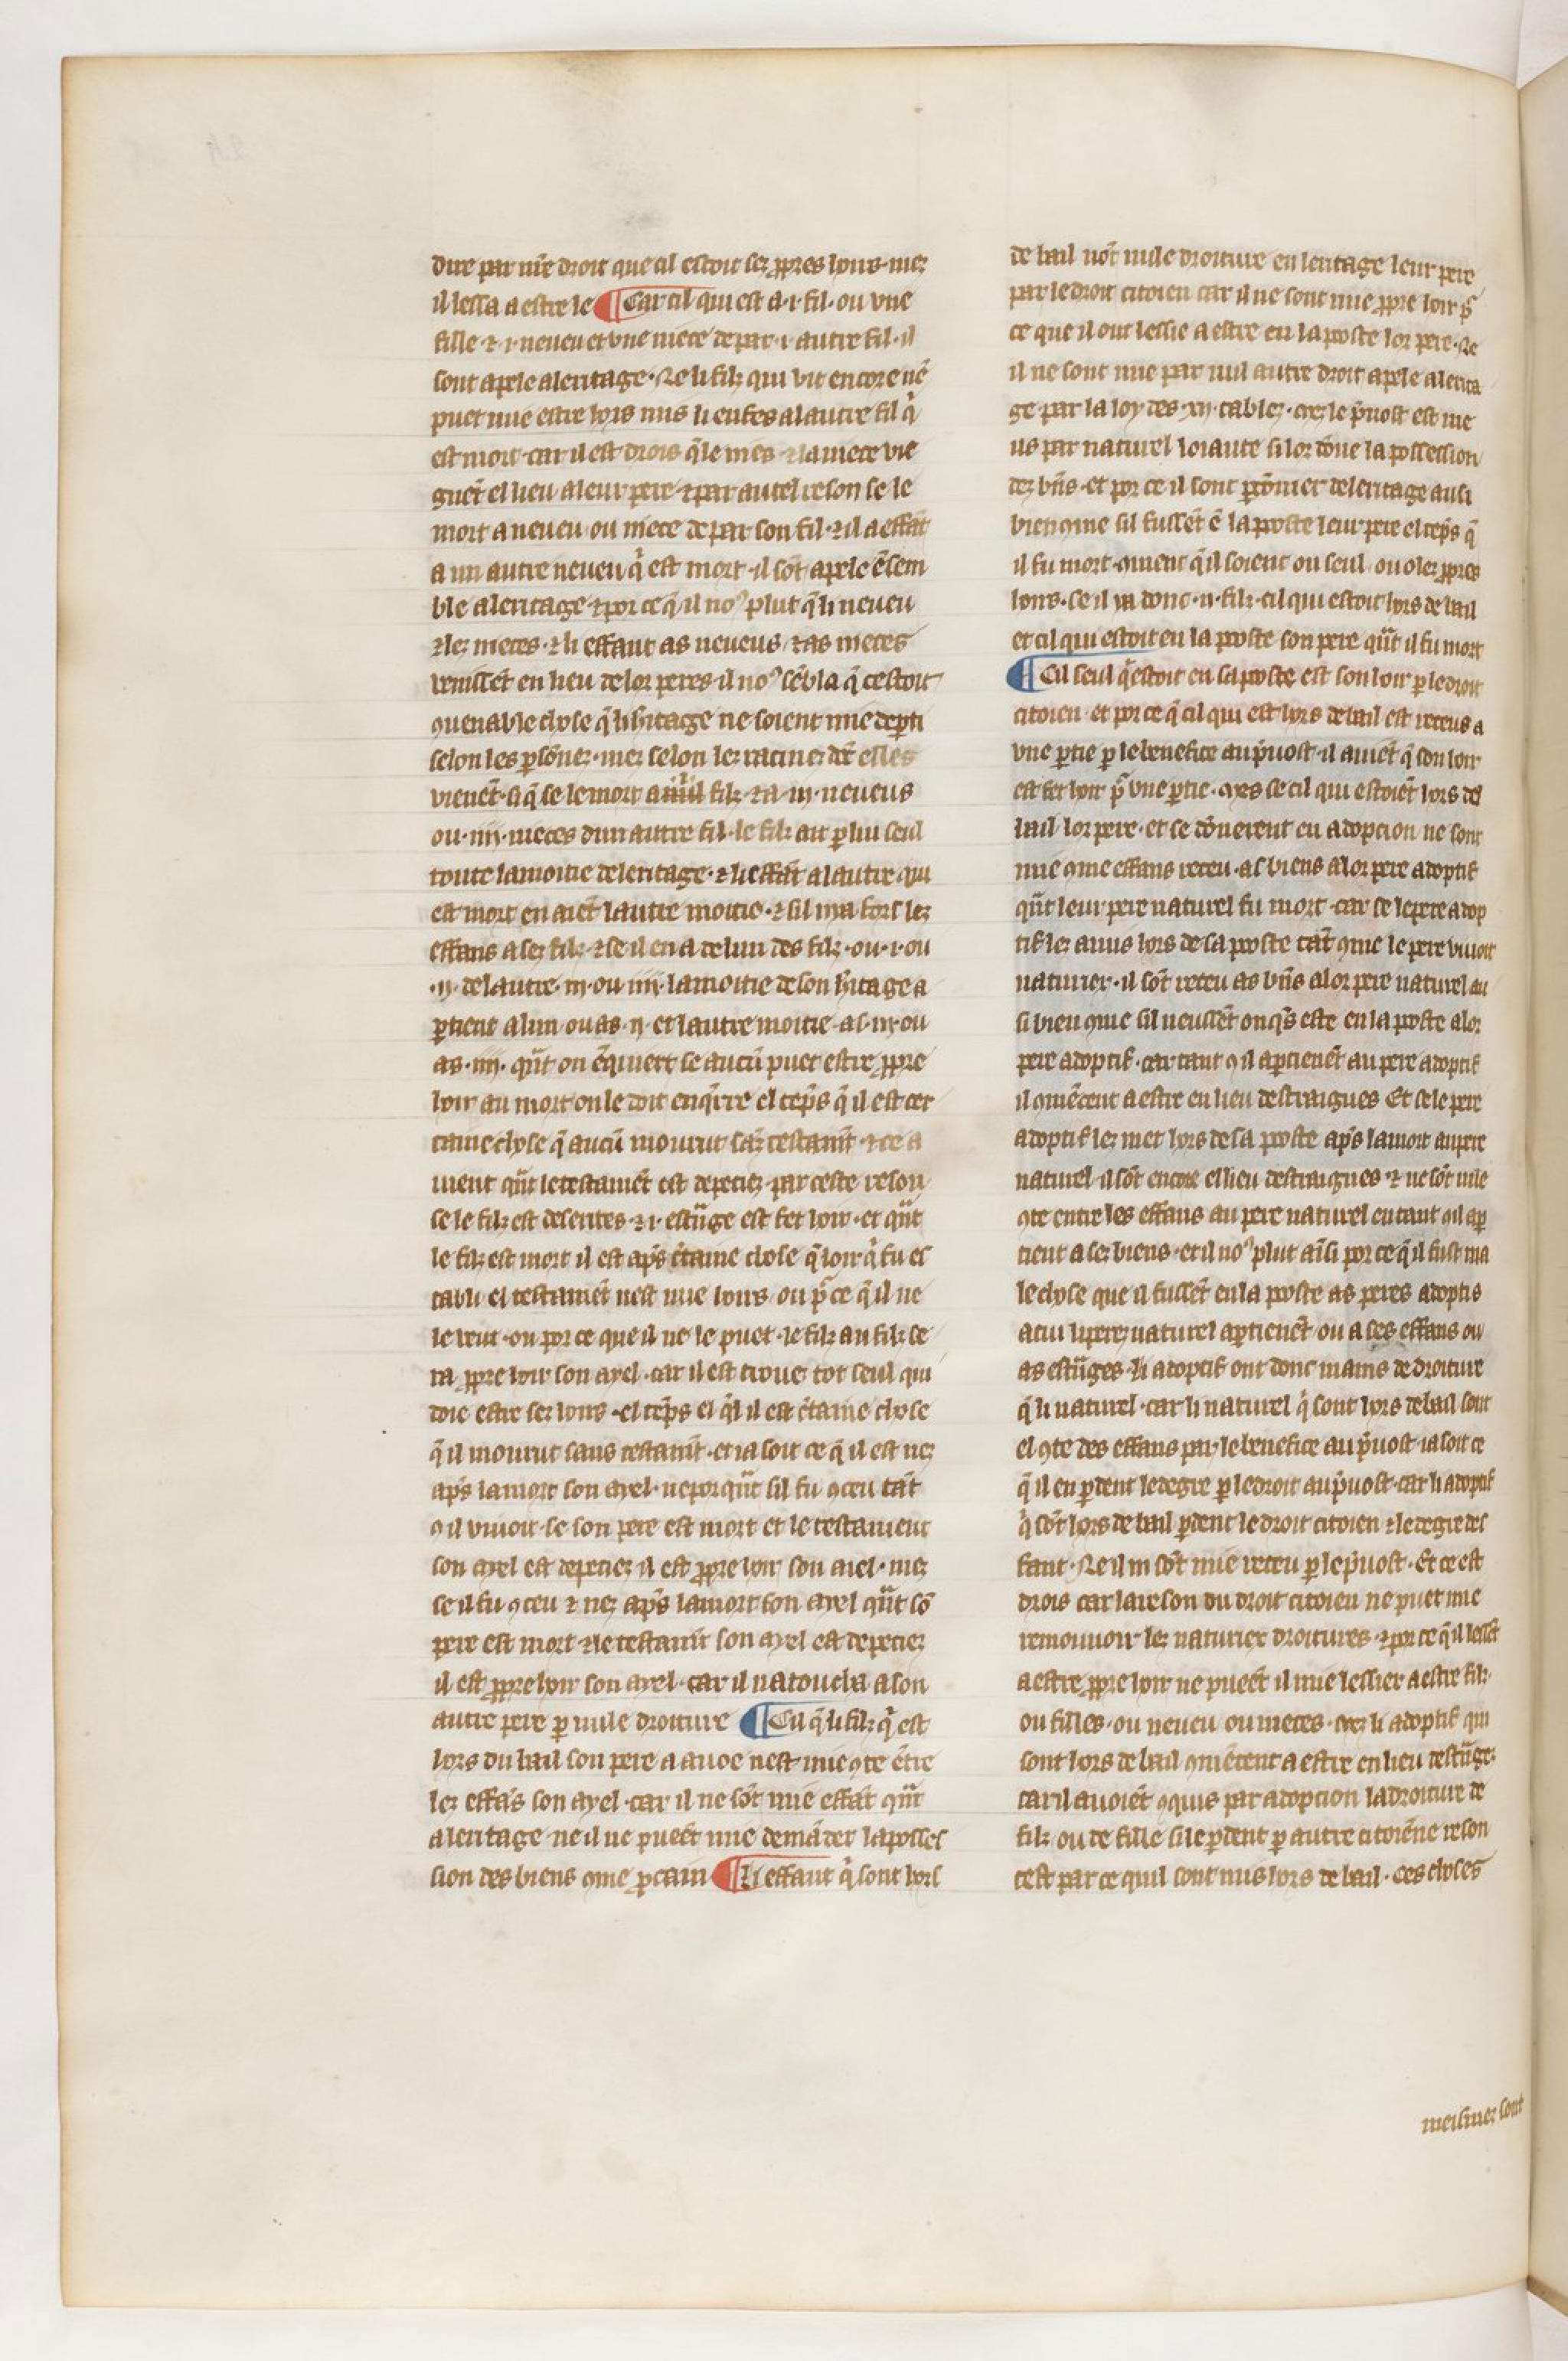 dire par nr̃e droit que cil estoit sez ꝓpres hoirs· mez
il lessa a estre le ¶ Car cil qui est a ·i· fil· ou vne
fille· ⁊ ·i· neueu et vne niece de par ·i· autre fil· il
sont apele aleritage· Ne li filz qui vit encore nẽ
puet mie estre hors mis li enfes alautre fil q̇
est mort· car il est drois q̃ le niés ⁊ la niece vie
gnẽt el lieu a leur pere ⁊ par autel reson se le
mort a neueu ou niece de par son fil· ⁊ il a effãt
a un autre neueu q̇ est mort· il sõt apele ẽsem
ble aleritage ⁊ por ce q̃ il noꝰ plut q̃ li neueu
⁊ lez nieces· ⁊ li effant as neueus ⁊ as nieces
venissẽt en lieu de lor peres· il noꝰ sẽbla q̃ cestoit
ꝯuenable chose q̃ li h̾itage ne soient mie deꝑti
selon les ꝑsõnez· mez selon lez racinez dõt elles
vienẽt· si q̃ se le mort a filz ⁊ a ·iij· neueus
ou ·iiij· nieces dun autre fil· le filz ait ꝑ lui seul
toute la moitie deleritage· ⁊ li effãt alautre qui
est mort en aiẽt lautre moitie· ⁊ sil nya fors lez
effans a sez filz· ⁊ se il en a de lun des filz ·ou ·i· ou
·ij· de lautre ·iij· ou ·iiij· la moitie de son h̾itage a
ꝑtient a lun ou as ·ij· et lautre moitie as ·iij· ou
as ·iiij· qñt on ẽquiert se aucũ puet estre ꝓpre
hoir au mort on le doit enq̇rre el tẽps q̃ il est cer
taine chose q̃ aucũ mourut sãz testamt̃ · ⁊ ce a
uient qñt le testamẽt est depeciez· par ceste reson
se le filz est deserites· ⁊ ·i· estũge est fet hoir· et qñt
le filz est mort il est ap̃s c̾taine chose q̃ loir q̇ fu es
tabli el testamẽt nest mie hoirs· ou p̃ ce q̃ il ne
le veut· ou por ce que il ne le puet· le filz au filz se
ra ꝓpre hoir son ayel· car il est troue tot seul qui
doie estre sez hoirs· el tẽps el q̃l il est c̾taine chose
q̃ il mourut sans testamt̃· et ia soit ce q̃ il est nez
ap̃s la mort son ayel· neporqñt sil fu ꝯceu tãt
ꝯ il viuoit· se son pere est mort et le testament
son ayel est depeciez il est ꝓpre hoir son aiel· mez
se il fu ꝯceu ⁊ nez ap̃s la mort son ayel qñt sõ
pere est mort ⁊ le testamt̃ son ayel est depeciez
il est ꝓpre hoir son ayel· car il natoucha a son
autre pere ꝑ nule droiture ¶ Cil q̃ li filz q̇ est
hors du bail son pere a auoe nest mie ꝯte ẽtre
lez effãs son ayel· car il ne sõt mie effãt qñt
aleritage ne il ne pueẽt mie demãder la posses
sion des biens ꝯme ꝓcain ¶ Li effant q̇ sont hors
de bail nõt nule droiture en leritage leur pere
par le droit citoien car il ne sont mie ꝓpre hoir p̃
ce que il ont lessie a estre en la poste lor pere· Ne
il ne sont mie par nul autre droit apele a lerita
ge par la loy des ·xij· tablez· mez le p̃uost est me
us par naturel loiaute si lor dõne la possession
dez bñs· et por ce il sont ꝑcõnier deleritage ausi
bien ꝯme sil fussẽt ẽ la poste leur pere el tẽps q̃
il fu mort· ꝯment q̃ il soient ou seul· ou o lez ꝓpres
hoirs· se il ya donc ·ij· filz· cil qui estoit hors de bail
et cil qui estoit en la poste son pere qñt il fu mort
¶ Cil seul q̃ estoit en sa poste est son hoir ꝑ le droit
citoien· et por ce q̃ cil qui est hors de bail est receus a
vne ꝑtie ꝑ le benefice au p̃uost· il auiẽt q̃ son hoir
est fet hoir p̃ vne ꝑtie· Mes se cil qui estoiẽt hors del
bail lor pere· et se dõnerent en adopcion ne sont
mie ꝯme effans receu· as biens a lor pere adoptif
qñt leur pere naturel fu mort· car se le pere adop
tif lez a mis hors de sa poste tãt ꝯme le pere viuoit
naturier· il sõt receu as bñs a lor pere naturel au
si bien ꝯme sil neussẽt onq̃s este en la poste a lor
pere adoptif· car tant ꝯ il aꝑtienẽt au pere adoptif
il ꝯmẽcent a estre en lieu destraignes Et se le pere
adoptif lez met hors de sa poste ap̃s la mort au pere
naturel· il sõt encore el lieu destraignes· ⁊ ne sõt mie
ꝯte entre les effans au pere naturel en tant ꝯ il aꝑ
tient a sez biens· et il noꝰ plut aĩsi por ce q̃ il fust ma
le chose que il fussẽt en la poste as peres adoptis
a cui li perez naturel aꝑtienẽt· ou a ses effans ou
as estũges· li adoptif ont donc mains de droiture
q̃ li naturel· car li naturel q̇ sont hors de bail sont
el ꝯte des effans par le benefice au p̃uost· ia soit ce
q̃ il en ꝑdent le degre ꝑ le droit au p̃uost· car li adoptif
q̇ sõt hors de bail ꝑdent le droit citoien ⁊ le degre des
fant· Ne il ni sõt mie receu ꝑ le p̃uost· Et ce est
drois car la reson du droit citoien ne puet mie
remouuoir lez naturiex droitures· ⁊ por ce q̃ il lessẽt
a estre ꝓpre hoir ne pueẽt il mie lessier a estre filz·
ou filles· ou neueu ou nieces· Mez li adoptif qui
sont hors de bail ꝯmẽcent a estre en lieu destũgez
car il auoiẽt ꝯquis par adopcion la droiture de
filz ou de fille si le ꝑdent ꝑ autre citoiẽne reson
cest par ce quil sont mis hors de bail· Ces choses
meismez sont